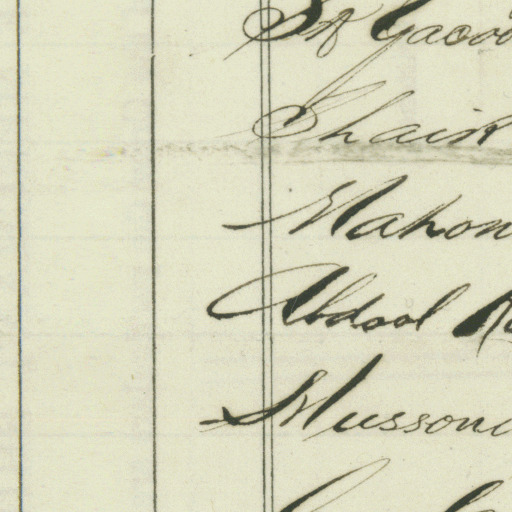 Sk Yacoo
Shaik
Mahon
Abdool R
Musson